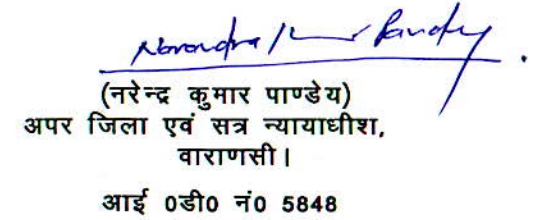 Narendra K Pandey.
(नरेन्द्र कुमार पाण्डेय)
अपर जिला एवं सत्र न्यायाधीश,
वाराणसी।
आई 0डी0 नं0 5848